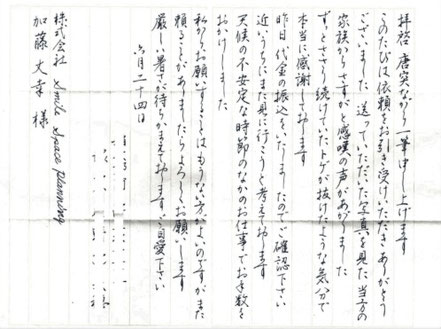 拝啓 唐突ながら一筆申し上げます
このたびは依頼をお引き受けいただき ありがとう
ございました 送っていただいた写真を見た当方の
家族からさすがと感嘆の声があがりました
ずっとささり続けていたトゲが抜けたような気分で
本当に感謝しております
昨日 代金の振込をいたしましたのでご確認下さい
近いうちにまた見に行こうと考えております
天候の不安定な時節のなかのお仕事でお手数を
おかけしました
私からお願いすることはもうない方がよいのですが また
頼ることがありましたらよろしくお願いします
厳しい暑さが待ちかまえております ご自愛下さい
六月二十四日
株式会社 Smile Space planning
加藤丈幸 様